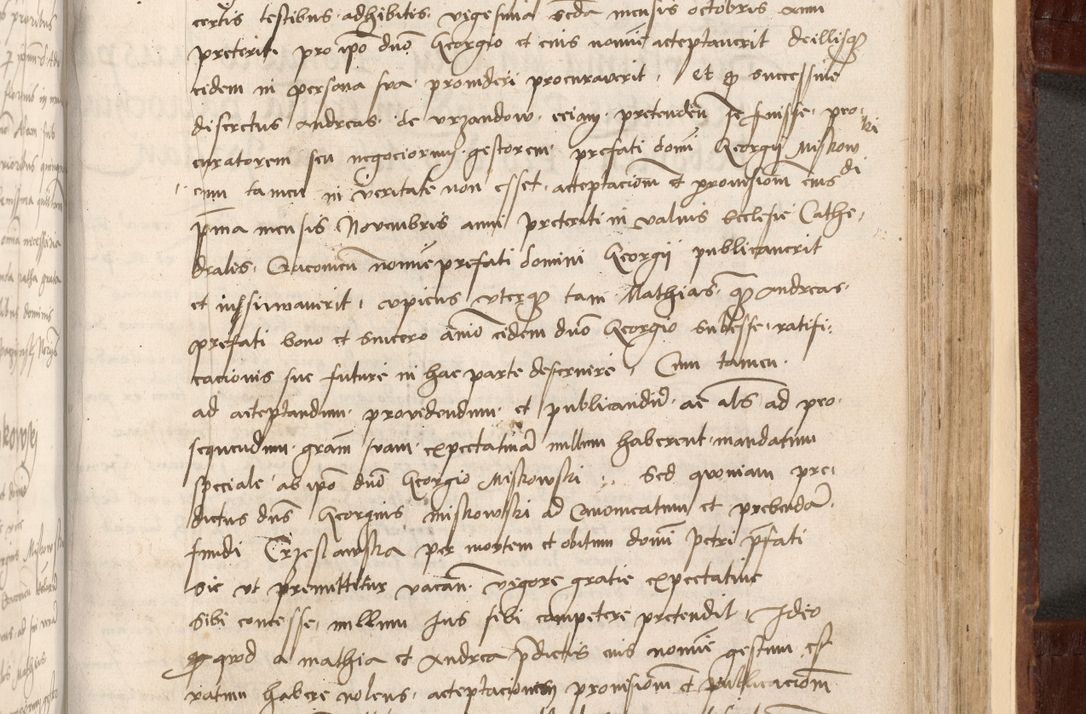 certis testibus adhibitis vigesima secda mensis octobris anni
preterit pro ipo dno Georgio et eius nomine acceptaverit de illisqz
eidem in persona sua provideri procuraverit Et qz successive
discretus Andreas de Vrzandow eciam pretenden se fuisse pro
curatorem seu negociorum gestorem prefati domi Georgii Miskow
ski
cum tamen in veritate non esset acceptaciom et provisiom eius
di
pma mensis Novembris anni preteriti in valvis Ecclesie Cathe
dralis Cracovien nomine prefati domini Georgii publicaverit
et insinuaverit uterqz tam Mathias qz Andreas
prefati bono et sincero animo eidem dno Georgio subesse ratifi
cacionis sue future in hac parte deservire Cum tamen
ad acceptandum providendum et publicandum ac als ad pro
sequendum gram suam expectativam nullum haberent mandatum
speciale ab ipo dno Georgio Miskowski Sed quoniam pre
dictus dns Georgius Miskowski ad Canonicatum et prebendam
fundi Trzeslawska per mortem et obitum domi Petri pfati
sic ut premittitur vacan vigore gratie expectative
sibi concesse nullum Ius sibi competere pretendit Ideo
quod a Mathia et Andrea pdictis eius nomine gestum est
ratum habere nolens acceptacionem provisiom et publicaciom